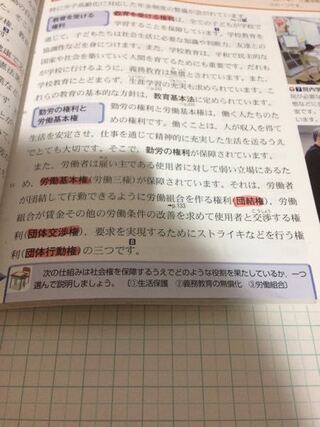 教育を受ける権利
教育を受ける権利は、全ての子どもが学校で
学習することを保障しています。学校教育を
通じて、子どもたちは社会生活に必要な知識や判断力、友達との
協調性などを身につけます。また、学校教育は、平和で民主的な
国家や社会を築いていく人間を育てるためにも重要です。だれも
が学校に行けるように、義務教育は無償とされています。また、
学校教育にとどまらず、生涯学習の充実も求められています。こ
れらの教育の基本的な方針は、教育基本法に定められています。
勤労の権利と労働基本権
勤労の権利と労働基本権は、働く人たちのた
めの権利です。働くことは、人が収入を得て
生活を安定させ、仕事を通じて精神的に充実した生活を送るうえ
でとても大切です。そこで、勤労の権利が保障されています。
また、労働者は雇い主である使用者に対して弱い立場にあるた
め、労働基本権(労働三権)が保障されています。それは、労働者
が団結して行動できるように労働組合を作る権利(団結権)、労働
p.133
組合が賃金その他の労働条件の改善を求めて使用者と交渉する権
利(団体交渉権)、要求を実現するためにストライキなどを行う権
利(団体行動権)の三つです。
次の仕組みは社会権を保障するうえでどのような役割を果たしているか、一つ
選んで説明しましょう。〔①生活保護 ②義務教育の無償化 ③労働組合〕